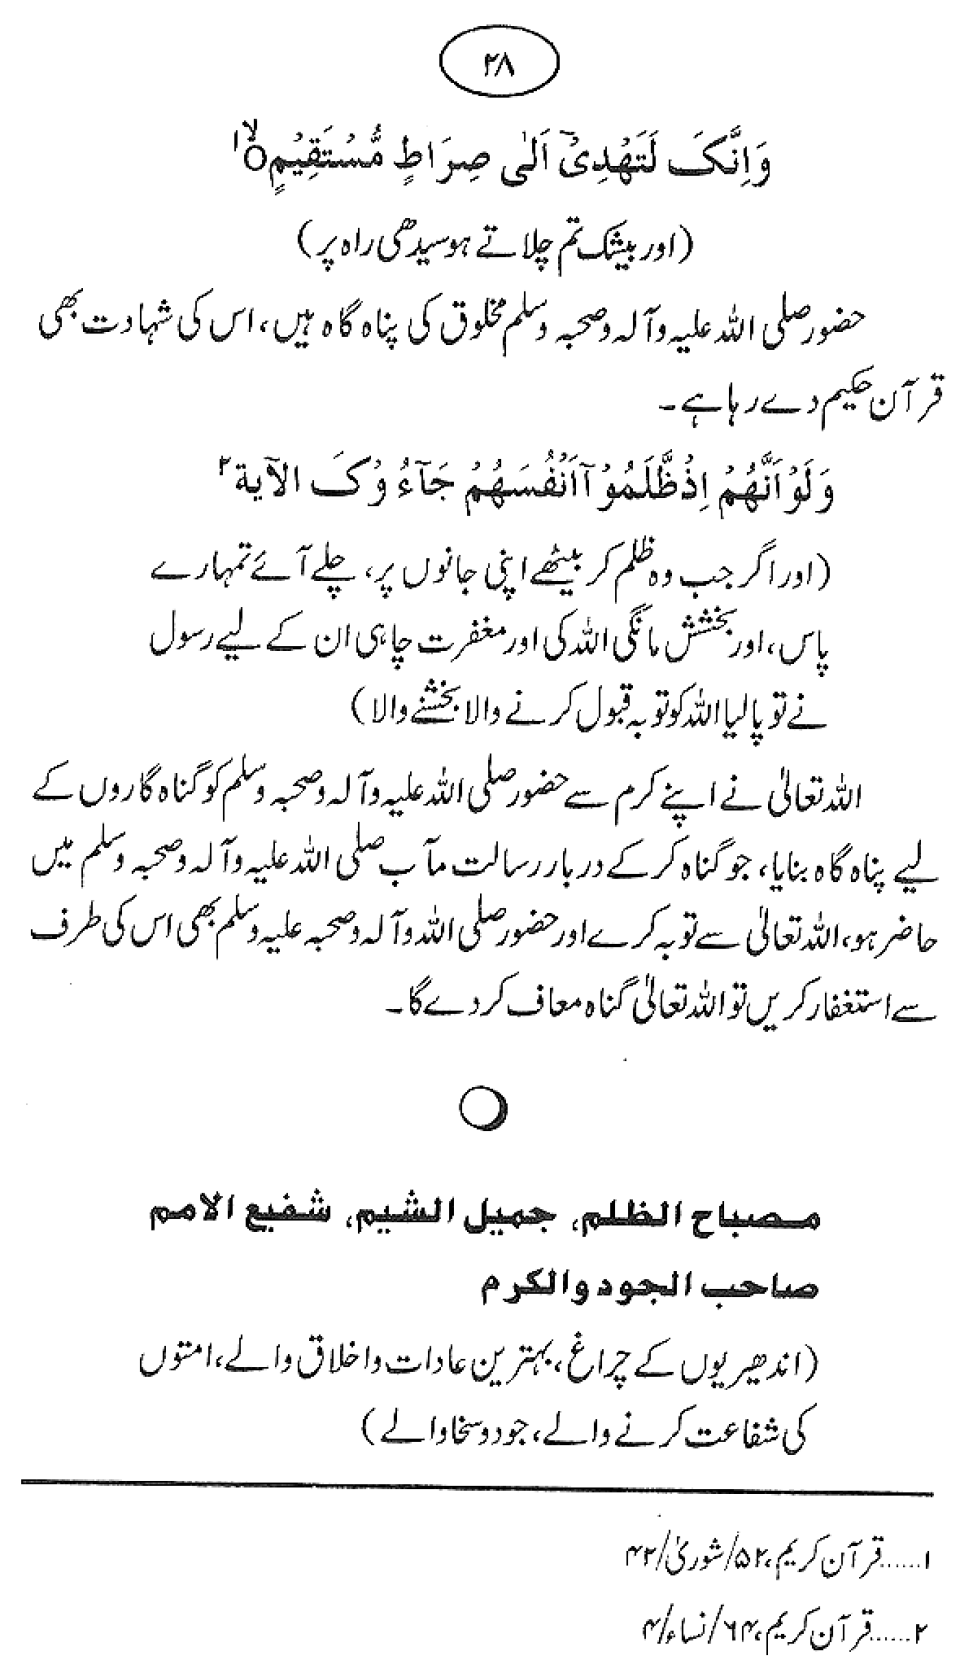 ۲۸
وَاِنَّکَ لَتَھْدِیْۤ اَلٰی صِرَاطٍ مُّسْتَقِیْمٍ۝ۙ ۱
(اور بیشک تم چلاتے ہو سیدھی راہ پر)
حضور صلی اللہ علیہ وآلہ وصحبہ وسلم مخلوق کی پناہ گاہ ہیں، اس کی شہادت بھی
قرآن حکیم دے رہا ہے۔
وَلَوْ اَنَّھُمْ اِذْ ظَّلَمُوْۤا اَنْفُسَھُمْ جَآءُ وْکَ الآیۃ ۲
(اور اگر جب وہ ظلم کر بیٹھے اپنی جانوں پر، چلے آئے تمہارے
پاس، اور بخشش مانگی اللہ کی اور مغفرت چاہی ان کے لیے رسول
نے تو پالیا اللہ کو توبہ قبول کرنے والا بخشنے والا)
اللہ تعالیٰ نے اپنے کرم سے حضور صلی اللہ علیہ وآلہ وصحبہ وسلم کو گناہ گاروں کے
لیے پناہ گاہ بنایا، جو گناہ کر کے دربار رسالت مآب صلی اللہ علیہ وآلہ وصحبہ وسلم میں
حاضر ہو، اللہ تعالیٰ سے توبہ کرے اور حضور صلی اللہ وآلہ وصحبہ علیہ وسلم بھی اس کی طرف
سے استغفار کریں تو اللہ تعالیٰ گناہ معاف کر دے گا۔
مصباح الظلم، جمیل الشیم، شفیع الامم
صاحب الجود والکرم
(اندھیریوں کے چراغ، بہترین عادات و اخلاق والے، امتوں
کی شفاعت کرنے والے، جود و سخا والے)
۱......قرآن کریم، ۵۲/شوریٰ/۴۲
۲......قرآن کریم، ۶۴/نساء/۴